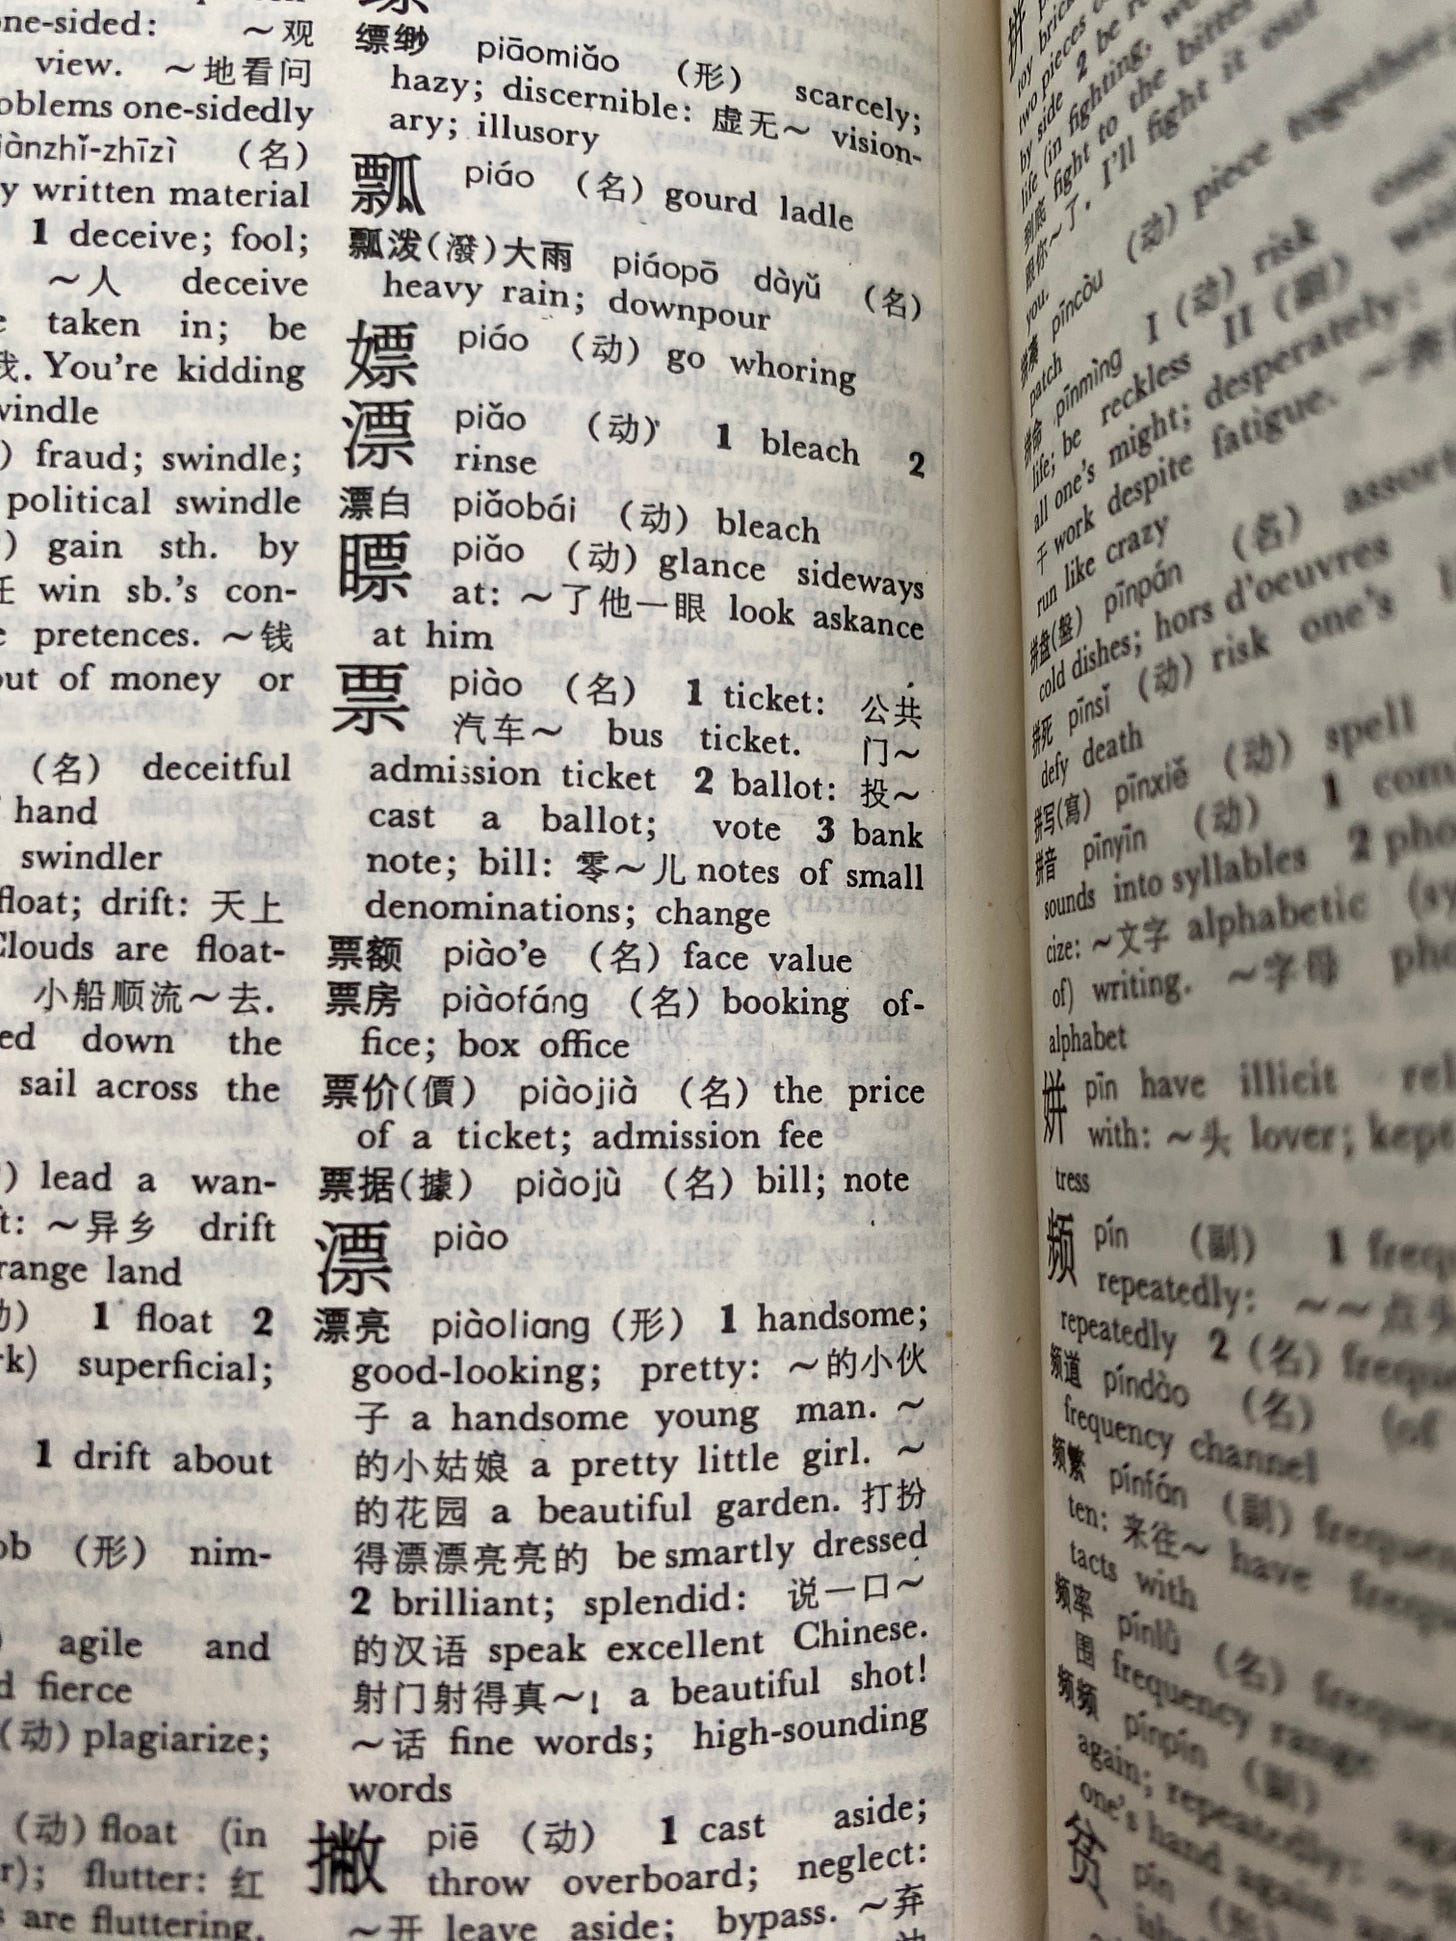 one-sided: ～观
view. ～地看问
oblems one-sidedly
iànzhǐ-zhīzì （名）
y written material
1 deceive; fool;
～人 deceive
taken in; be
我. You're kidding
windle
) fraud; swindle;
political swindle
) gain sth. by
win sb.'s con-
pretences. ～钱
out of money or
（名） deceitful
hand
swindler
float; drift: 天上
Clouds are float-
小船顺流～去.
ed down the
sail across the
) lead a wan-
t: ～异乡 drift
range land
1 float 2
k) superficial;
1 drift about
ob （形） nim-
) agile and
d fierce
（动）plagiarize;
（动）float (in
r); flutter: 红
s are fluttering.
缥缈 piāomiǎo （形） scarcely;
hazy; discernible: 虚无～ vision-
ary; illusory
瓢 piáo （名）gourd ladle
瓢泼(潑)大雨 piáopō dàyǔ （名）
heavy rain; downpour
嫖 piáo （动）go whoring
漂 piǎo （动） 1 bleach 2
rinse
漂白 piǎobái （动）bleach
瞟 piǎo （动）glance sideways
at: ～了他一眼 look askance
at him
票 piào （名） 1 ticket: 公共
汽车～ bus ticket. 门～
admission ticket 2 ballot: 投～
cast a ballot; vote 3 bank
note; bill: 零～儿 notes of small
denominations; change
票额 piào'e （名）face value
票房 piàofáng （名）booking of-
fice; box office
票价(價) piàojià （名）the price
of a ticket; admission fee
票据(據) piàojù （名）bill; note
漂 piào
漂亮 piàoliang（形） 1 handsome;
good-looking; pretty: ～的小伙
子 a handsome young man. ～
的小姑娘 a pretty little girl. ～
的花园 a beautiful garden. 打扮
得漂漂亮亮的 be smartly dressed
2 brilliant; splendid: 说一口～
的汉语 speak excellent Chinese.
射门射得真～! a beautiful shot!
～话 fine words; high-sounding
words
撇 piē （动） 1 cast aside;
throw overboard; neglect:
～开 leave aside; bypass. ～弃
拼
toy bric
two pieces
by side 2 be
life (in fighting, w
fight to the bitter
到底 I'll fight it out
跟你～了.
you.
拼凑 pīncòu （动）piece together
patch
拼命 pīnmìng I（动）risk one'
life; be reckless II（副）wi
all one's might; desperately:
干 work despite fatigue. ～奔
run like crazy
拼盘(盤) pīnpán （名） assort
cold dishes; hors d'oeuvres
拼死 pīnsǐ （动）risk one's
defy death
拼写(寫) pīnxiě （动）spell
拼音 pīnyīn （动） 1 com
sounds into syllables 2 pho
cize: ～文字 alphabetic (sy
of) writing. ～字母 pho
alphabet
姘 pīn have illicit rel
with: ～头 lover; kept
tress
频 pín （副） 1 frequ
repeatedly: ～～点头
repeatedly 2（名）freque
频道 píndào （名） (of
frequency channel
频繁 pínfán （副）frequen
ten: 来往～ have freque
tacts with
频率 pínlǜ （名）frequen
围 frequency range
频频 pínpín （副）
again; repeatedly:
one's hand again and
贫 pín （形）